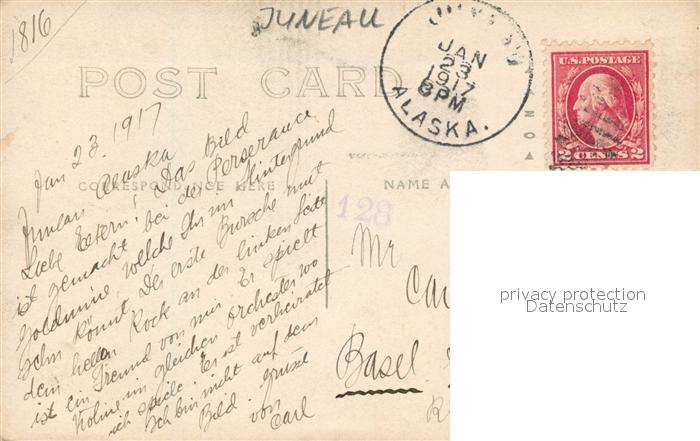 1816
JUNEAU
JUNEAU
JAN
23
1917
8PM
ALASKA.
U.S. POSTAGE
2 CENTS 2
POST CARD
CORRESPONDENCE HERE
NAME A
ON
128
Jan 23. 1917
Juneau Alaska
Liebe Eltern! Das Bild
ist gemacht bei der Perserance
Goldmine, welche Ihr im Hintergrund
sehn könnt. Der erste Bursche mit
dem hellen Rock an der linken Seite
ist ein Freund von mir. Er spielt
Violine im gleichen Orchester wo
ich spiele. Er ist verheiratet
Ich bin nicht auf dem
Bild. Grüsse
von Carl
Mr
Car
Basel
privacy protection
Datenschutz